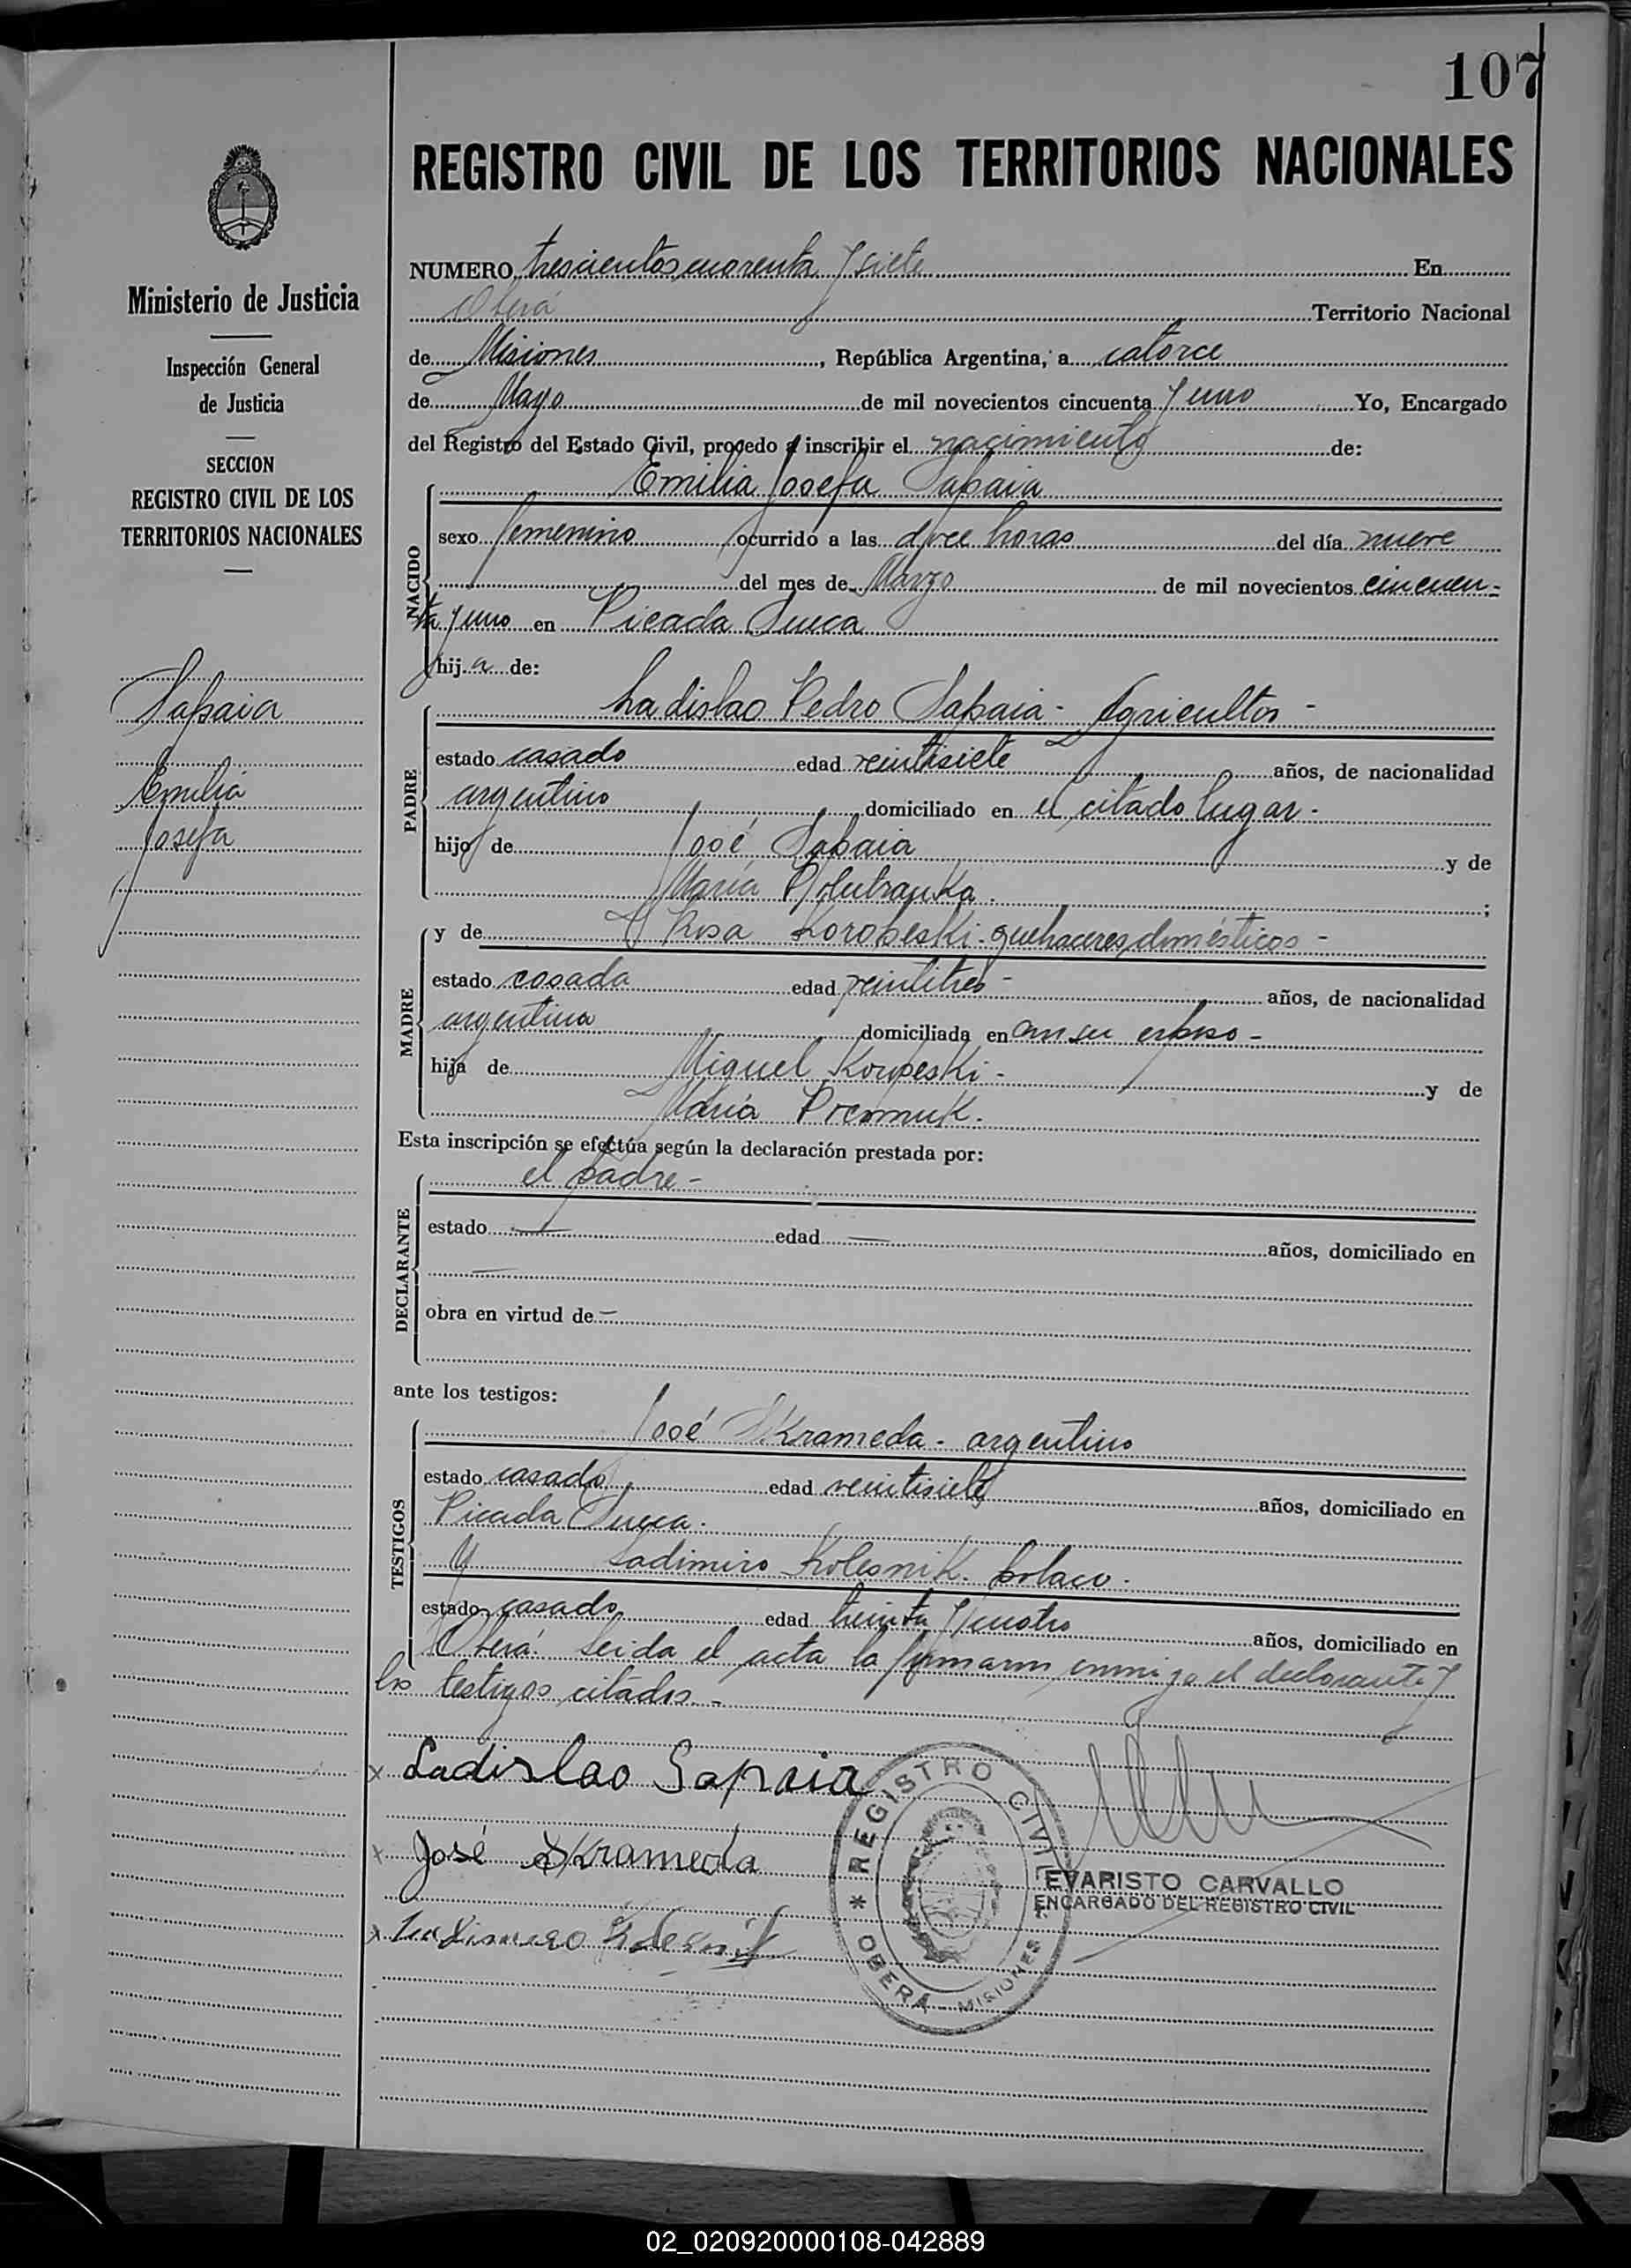 107
REGISTRO CIVIL DE LOS TERRITORIOS NACIONALES
Ministerio de Justicia
Inspección General
de Justicia
SECCION
REGISTRO CIVIL DE LOS
TERRITORIOS NACIONALES
Sapaia
Emilia
Josefa
NUMERO trescientos cuarenta y siete En
Oberá Territorio Nacional
de Misiones, República Argentina, a catorce
de Mayo de mil novecientos cincuenta y uno Yo, Encargado
del Registro del Estado Civil, procedo a inscribir el nacimiento de:
NACIDO
Emilia Josefa Sapaia
sexo femenino ocurrido a las doce horas del día nueve
del mes de Marzo de mil novecientos cincuen-
ta y uno en Picada Sueca
hija de:
PADRE
Ladislao Pedro Sapaia - Agricultor -
estado casado edad veintisiete años, de nacionalidad
argentino domiciliado en el citado lugar -
hijo de José Sapaia y de
María ;
MADRE
y de Rosa Koropeski - quehaceres domésticos -
estado casada edad veintitres - años, de nacionalidad
argentina domiciliada en con su esposo -
hija de Miguel Koropeski - y de
María
Esta inscripción se efectúa según la declaración prestada por:
DECLARANTE
el padre -
estado — edad — años, domiciliado en
—
obra en virtud de —
ante los testigos:
TESTIGOS
José Skrameda - argentino
estado casado edad veintisiete años, domiciliado en
Picada Sueca.
y Ladimiro Kolesnik - polaco -
estado casado edad treinta y cuatro años, domiciliado en
Oberá. Leida el acta la firmaron conmigo el declarante y
los testigos citados -
x Ladislao Sapaia
x José Skrameda
x Ladimiro Kolesnik
REGISTRO CIVIL
OBERA - MISIONES
EVARISTO CARVALLO
ENCARGADO DEL REGISTRO CIVIL
02_020920000108-042889